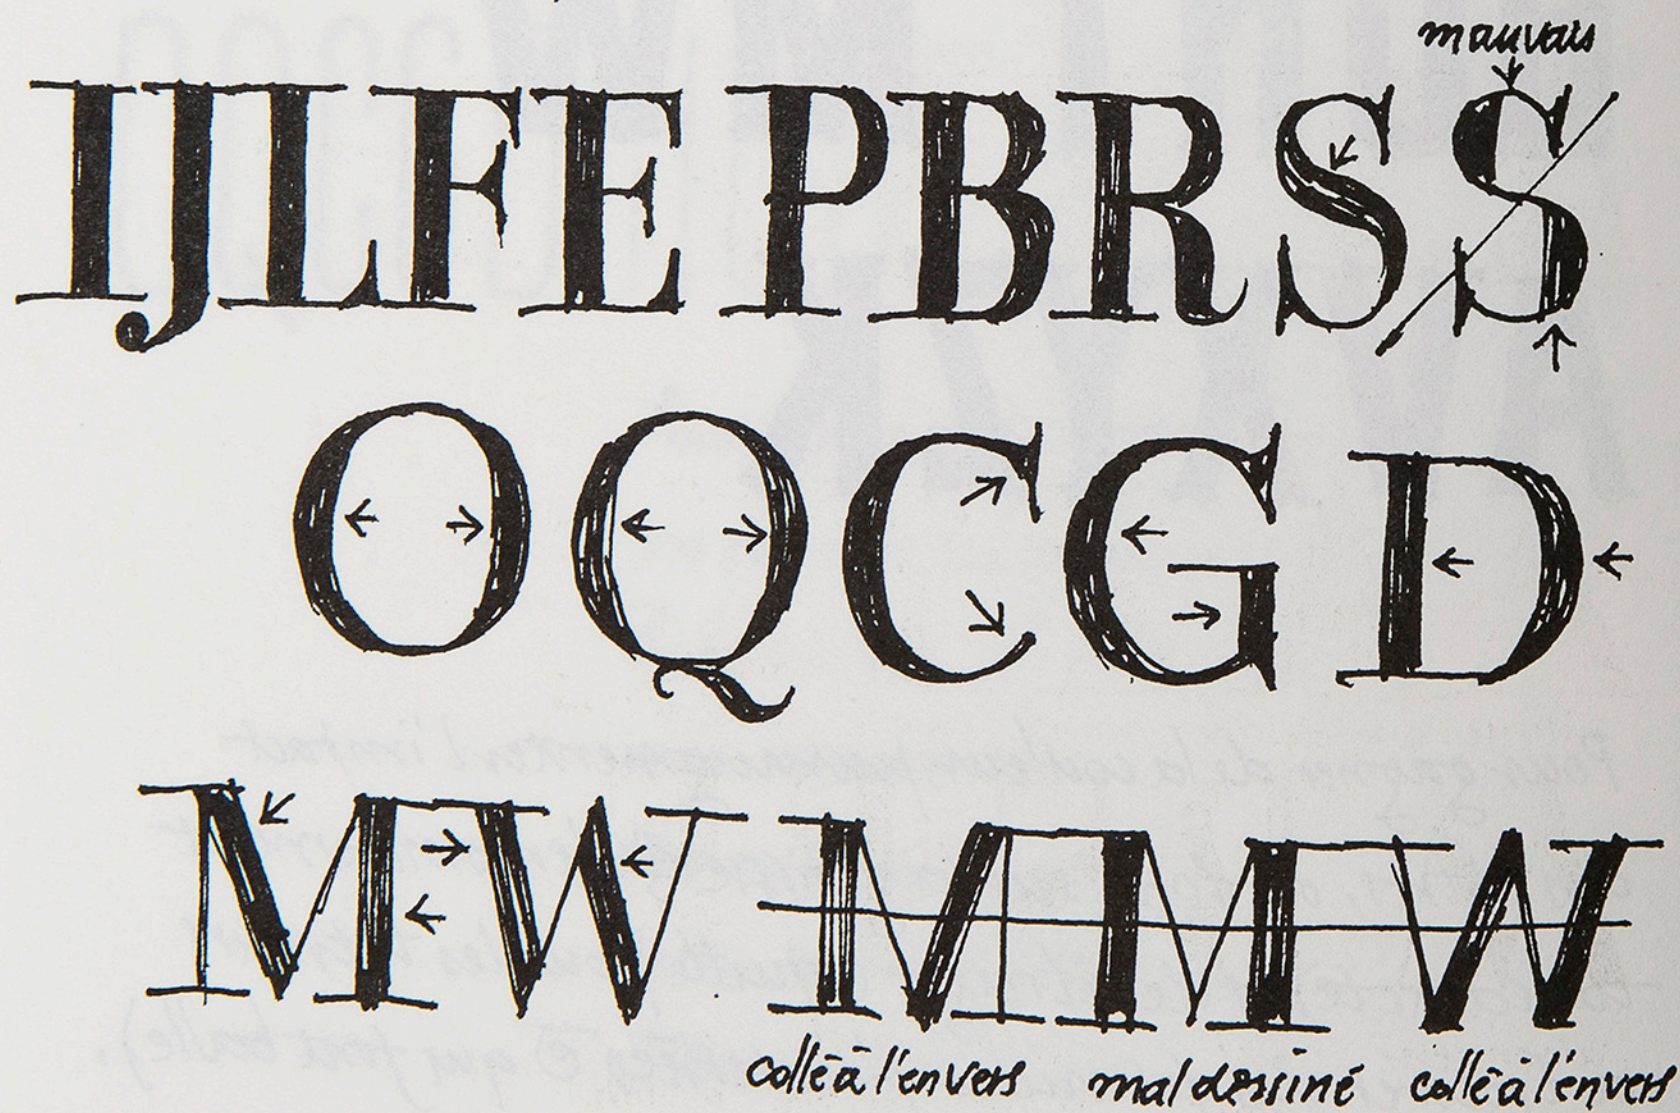 mauvais
IJLFE PBRS S
OQCGD
MW MMW
collé à l'envers mal dessiné collé à l'envers